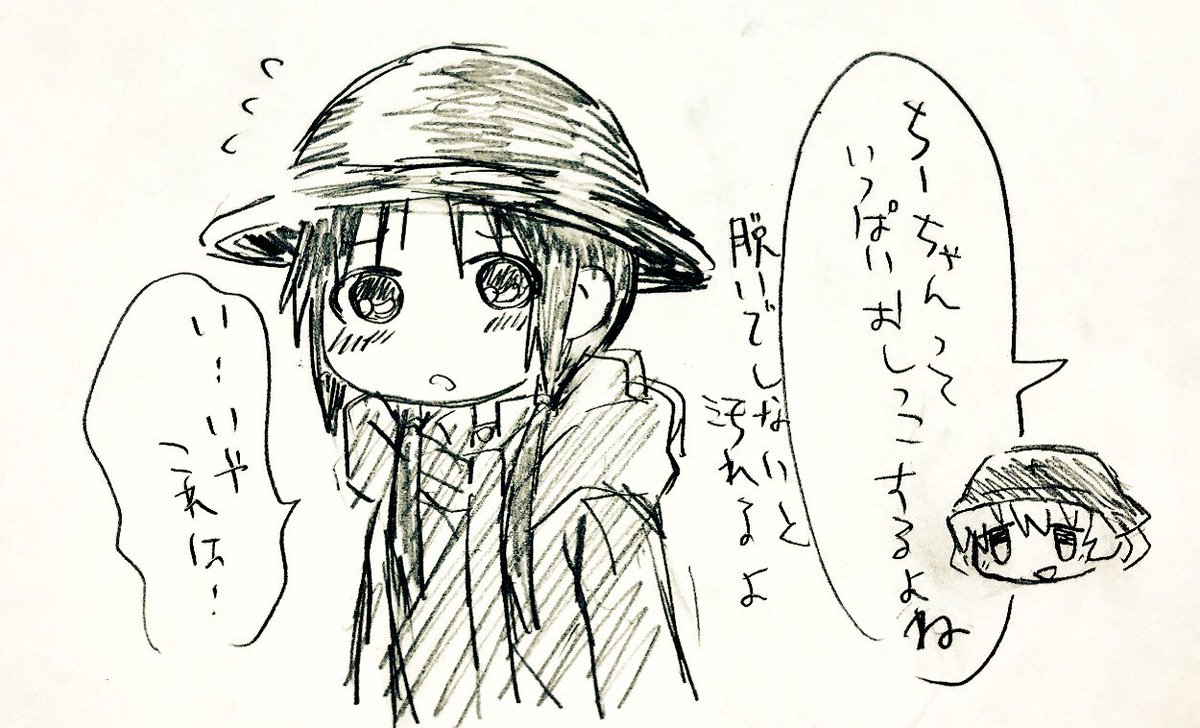 ちーちゃんって
いっぱいおしっこするよね
脱いでしないと
汚れるよ
い…いや
これは…